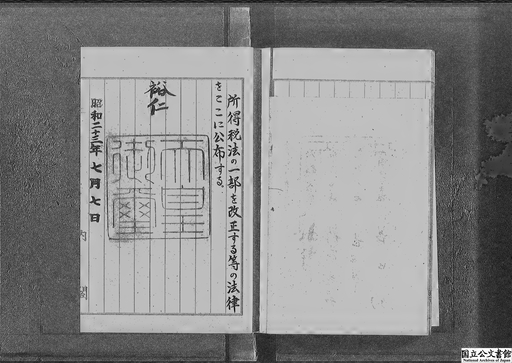 所得税法の一部を改正する等の法律
をここに公布する。
裕仁
天皇
御璽
昭和二十三年七月七日
内閣
国立公文書館
National Archives of Japan